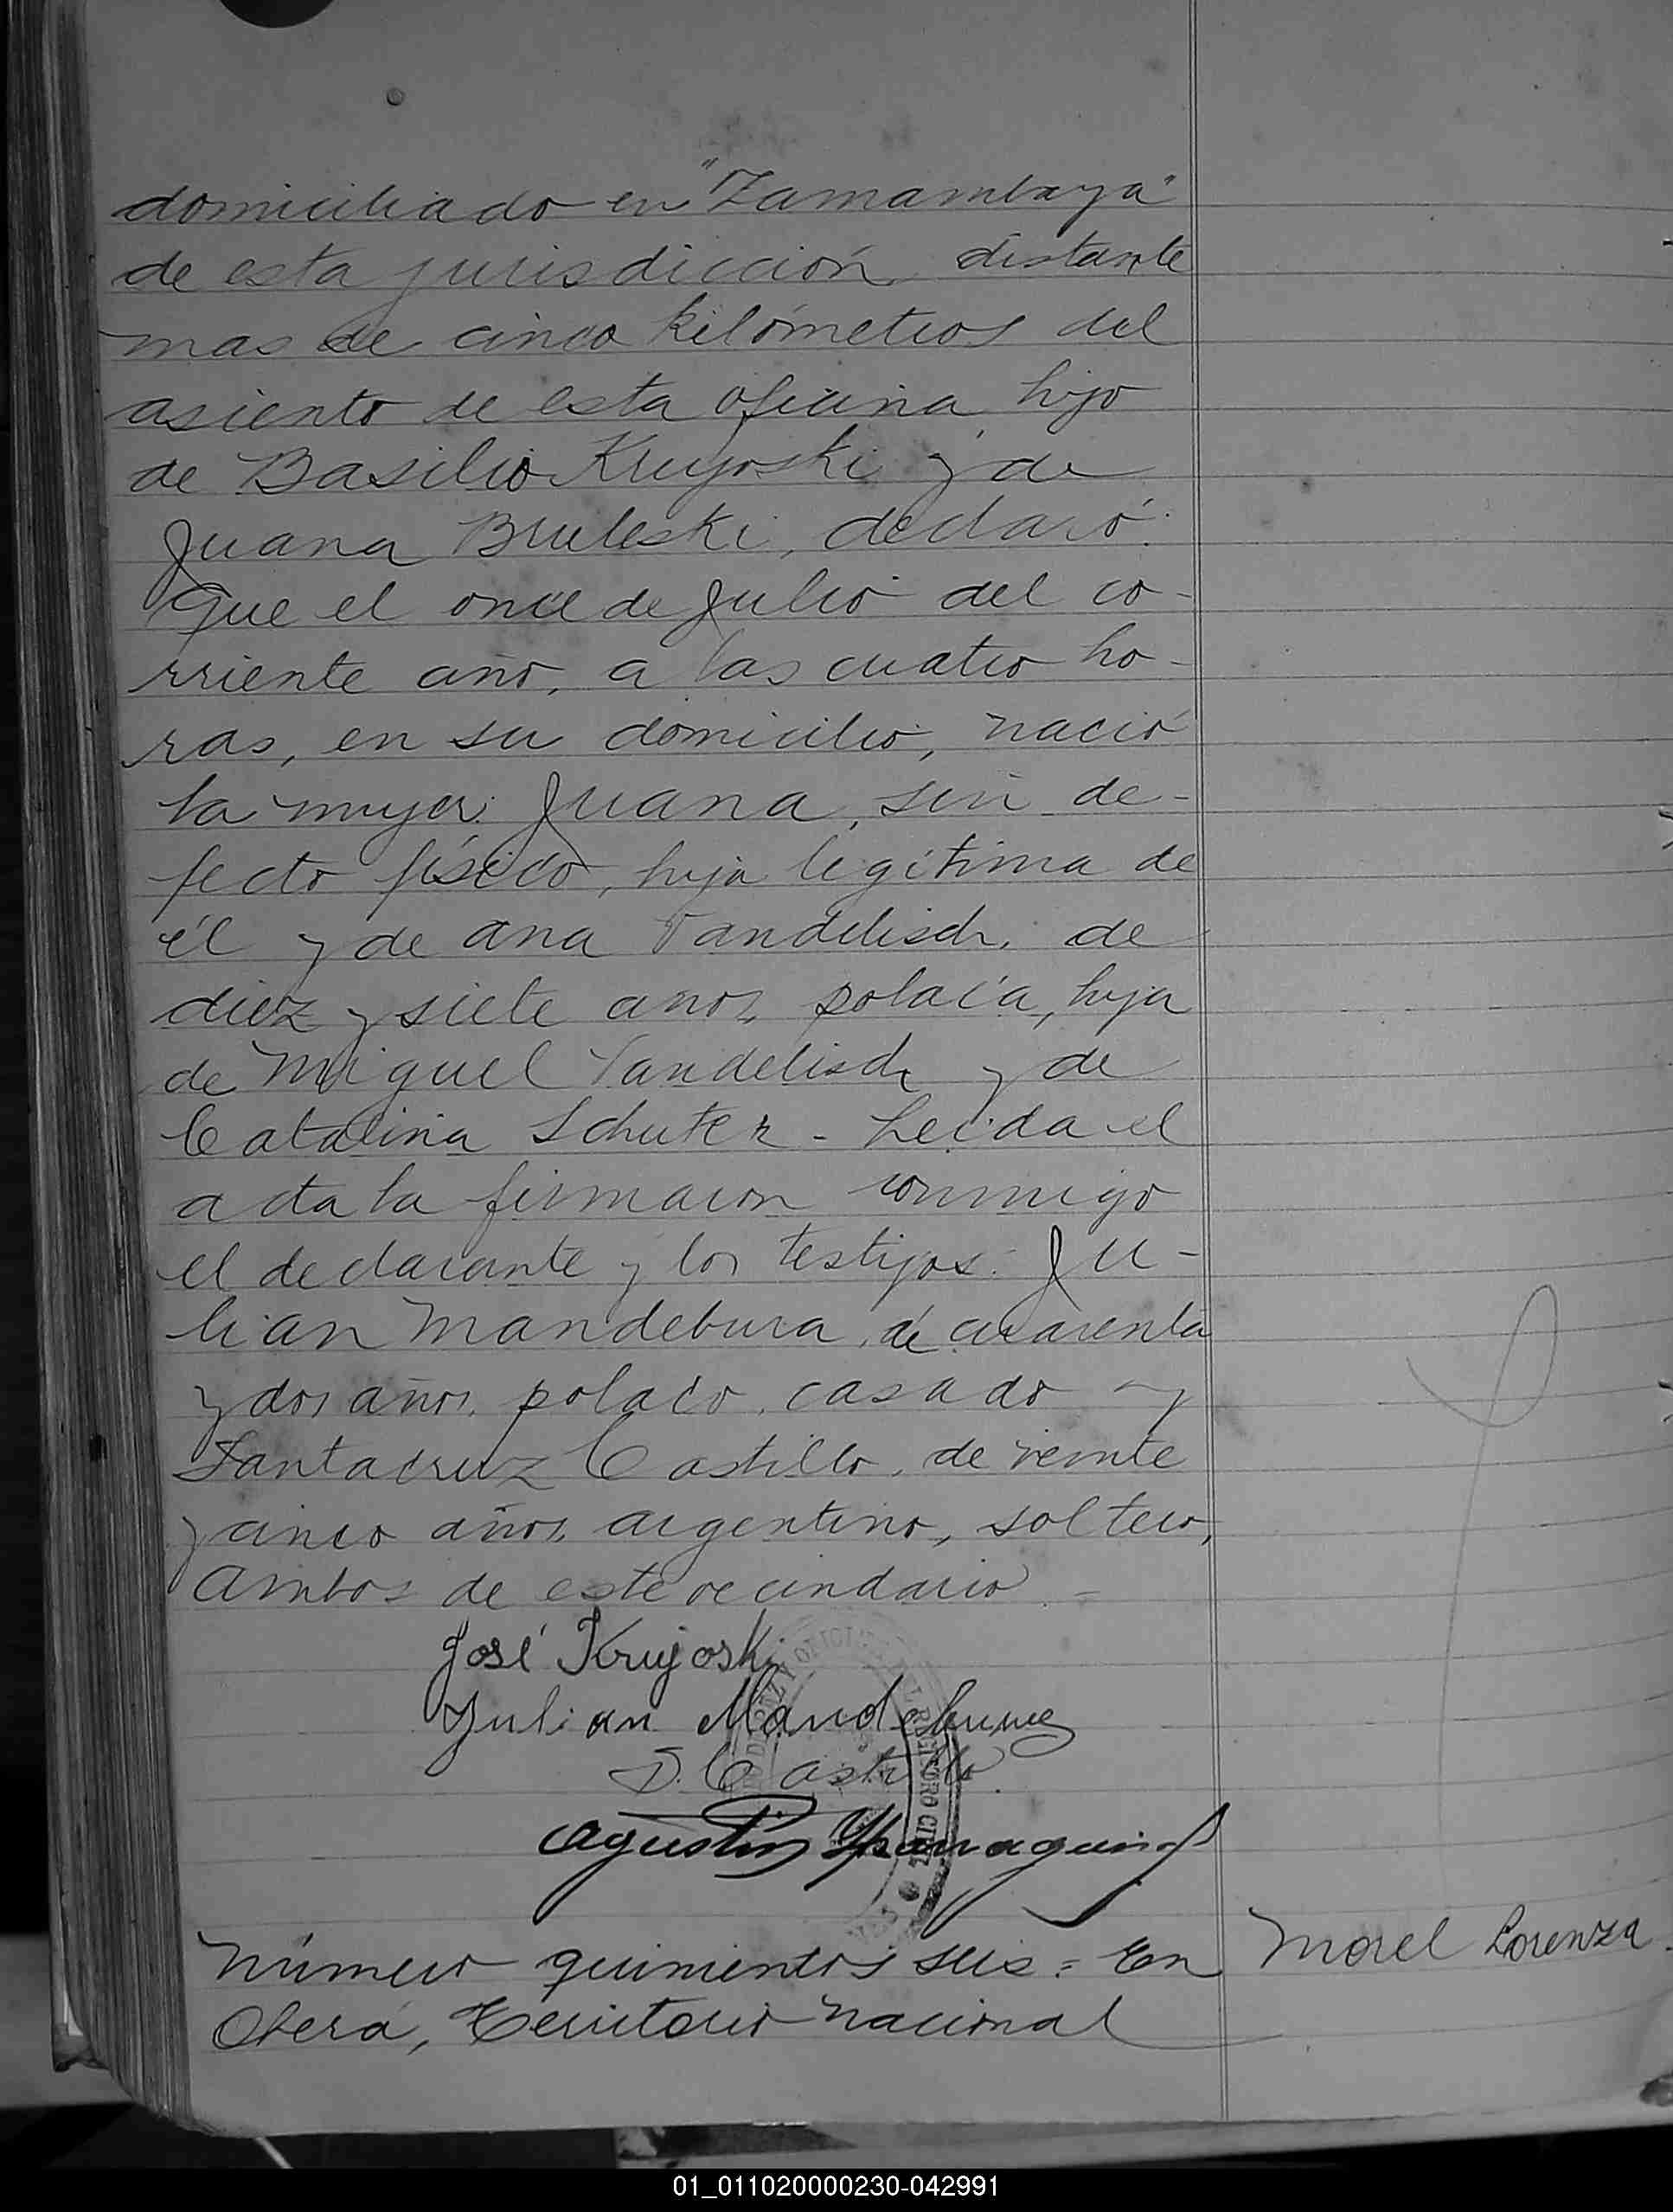 domiciliado en "Zamambaya"
de esta jurisdicción, distante
mas de cinco kilómetros del
asiento de esta oficina, hijo
de Basilio Krujoski y de
Juana Bruleski, declaró:
Que el once de Julio del co-
rriente año, a las cuatro ho-
ras, en su domicilio, nació
la mujer: Juana, sin de-
fecto físico, hija legítima de
él y de Ana Vandelisch, de
diez y siete años, polaca, hija
de Miguel Vandelisch y de
Catalina Schuter - Leida el
acta la firmaron conmigo
el declarante y los testigos: Ju-
lian Mandebura, de cuarenta
y dos años, polaco, casado y
Santacruz Castillo, de veinte
y cinco años, argentino, soltero,
Ambos de este vecindario. =
José Krujoski
Julian Mandebura
S. Castillo
Agustin
Número quinientos seis = En
Morel Lorenza
Oberá, Territorio Nacional
01_011020000230-042991